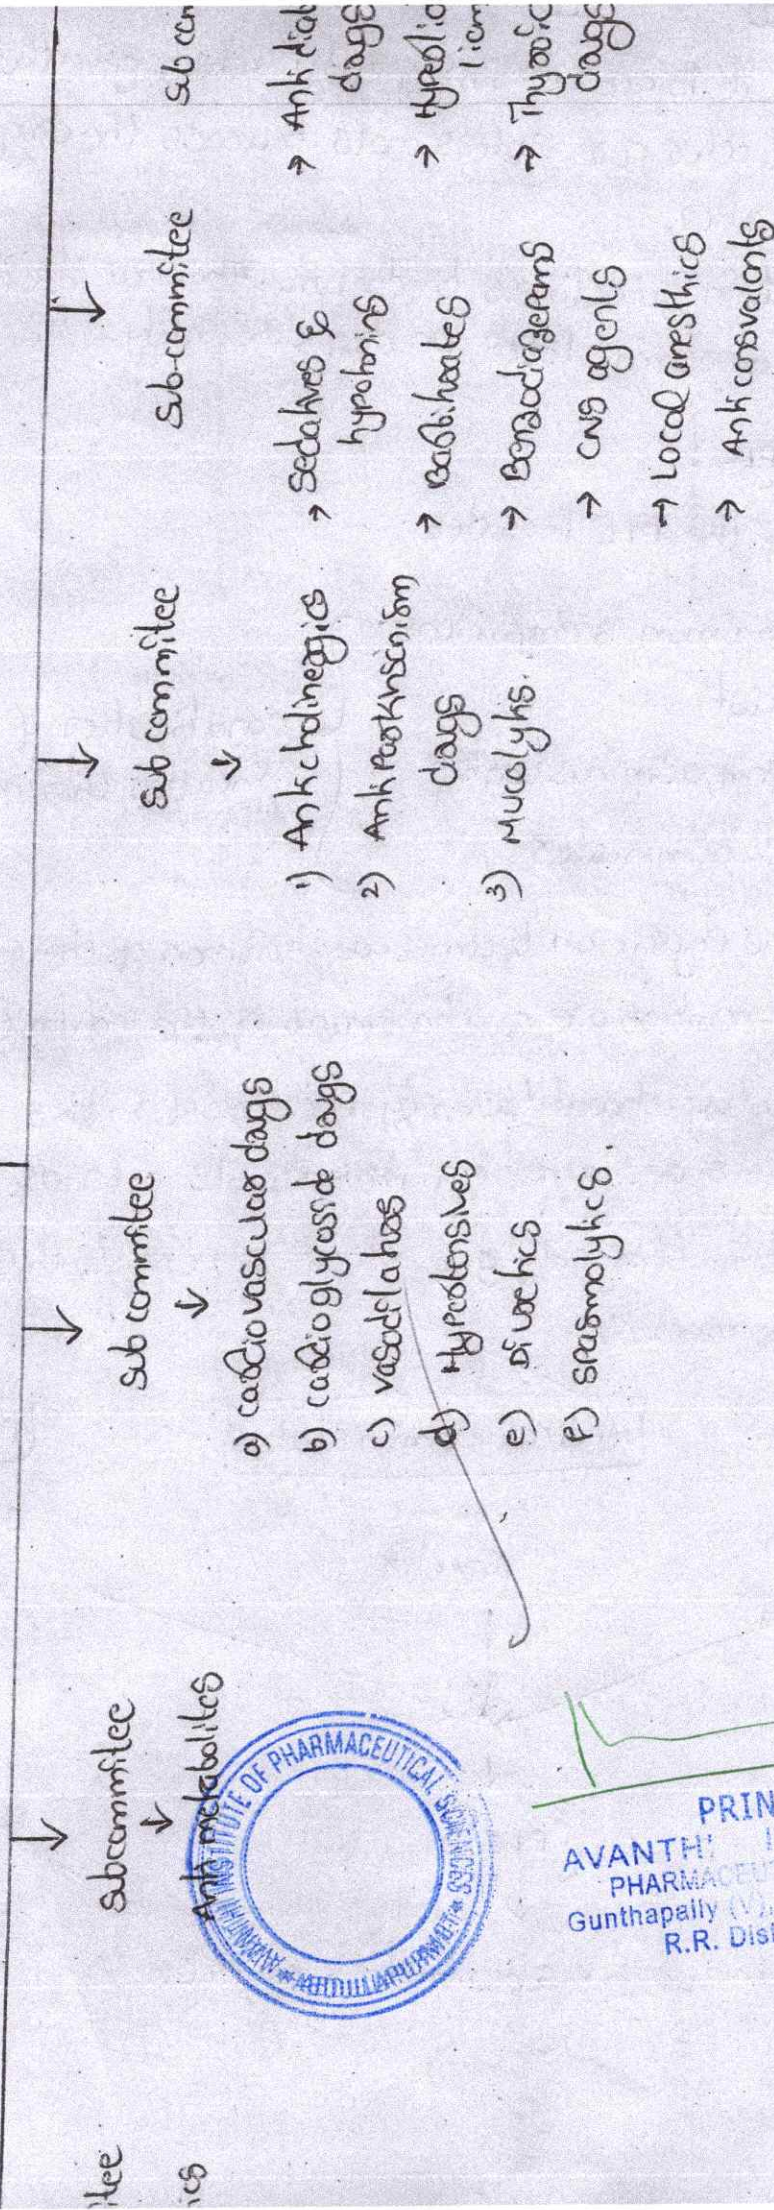 tee
ics
Subcommitee
Anti metabolites
Sub commitee
a) cardiovascular drugs
b) cardioglycoside drugs
c) vasodilators
d) Hypeotensives
e) Diuretics
f) spasmolytics.
Sub commitee
1) Anticholinergics
2) Anti Parkinsonism
drugs
3) Mucolytis.
Sub-commitee
→ Sedatives &
hypotonins
→ Barbiturates
→ Benzodiazepams
→ CNS agents
→ Local anesthics
→ Anti consvalants
Sub com
→ Anti diab
drugs
→
→ Thyroid
drugs
AVANTHI INSTITUTE OF PHARMACEUTICAL SCIENCES * ABDULLAPURMET *
PRIN
AVANTHI I
PHARMACEU
Gunthapally (V),
R.R. Dist